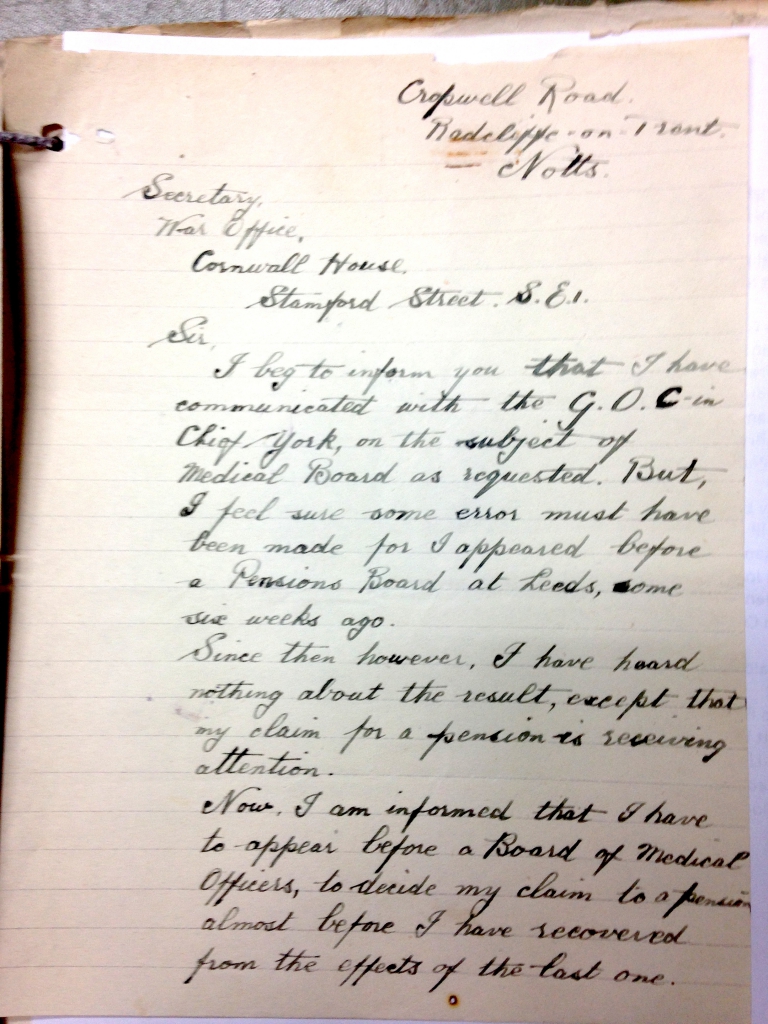 Cropwell Road.
Radcliffe-on-Trent.
Notts.
Secretary,
War Office,
Cornwall House.
Stamford Street. S.E.1.
Sir,
I beg to inform you that I have
communicated with the G.O.C-in
Chief York, on the subject of
Medical Board as requested. But,
I feel sure some error must have
been made for I appeared before
a Pensions Board at Leeds, some
six weeks ago.
Since then however, I have heard
nothing about the result, except that
my claim for a pension is receiving
attention.
Now. I am informed that I have
to appear before a Board of Medical
Officers, to decide my claim to a pension
almost before I have recovered
from the effects of the last one.